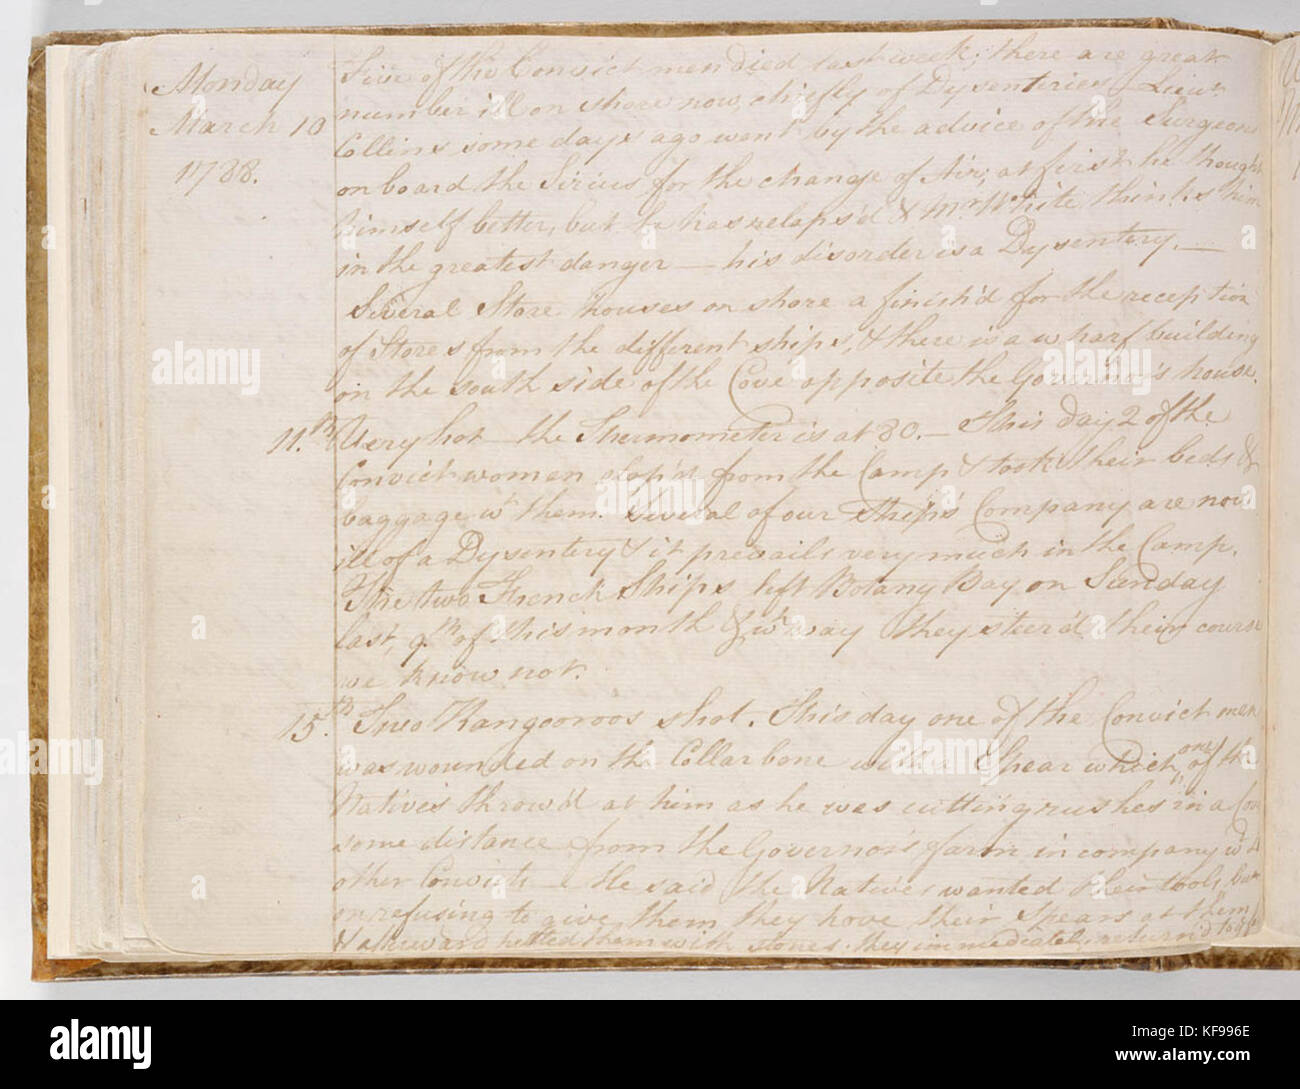 Monday
March 10
1788.
Five of the Convict men died last week; there are great
number ill on shore now, chiefly of Dysenteries. Lieut.
Collins some days ago went by the advice of the Surgeons
on board the Sirius for the change of Air; at first he thought
himself better, but he has relaps'd & Mr. White thinks him
in the greatest danger — his disorder is a Dysentery. —
Several Store houses on shore a finish'd for the reception
of Stores from the different ships, & there is a wharf building
on the south side of the Cove opposite the Governor's house.
11.th Very hot — the Thermometer is at 80. — This day 2 of the
Convict women elop'd from the Camp & took their beds &
baggage wth them. Several of our Ship's Company are now
ill of a Dysentery & it prevails very much in the Camp.
The two French Ships left Botany Bay on Sunday
last, 9th of this month & wt way they steer'd their course
we know not.
15.th Two Kangooroos shot. This day one of the Convict men
was wounded on the Collar bone with a Spear which one of the
Natives throw'd at him as he was cutting rushes in a Cove
some distance from the Governor's farm in company wth
other Convicts — He said the Natives wanted their tools, but
on refusing to give them they hove their Spears at them
& afterward pelted them with stones. they immediately return'd to ye
alamy
a
KF996E
www.alamy.com